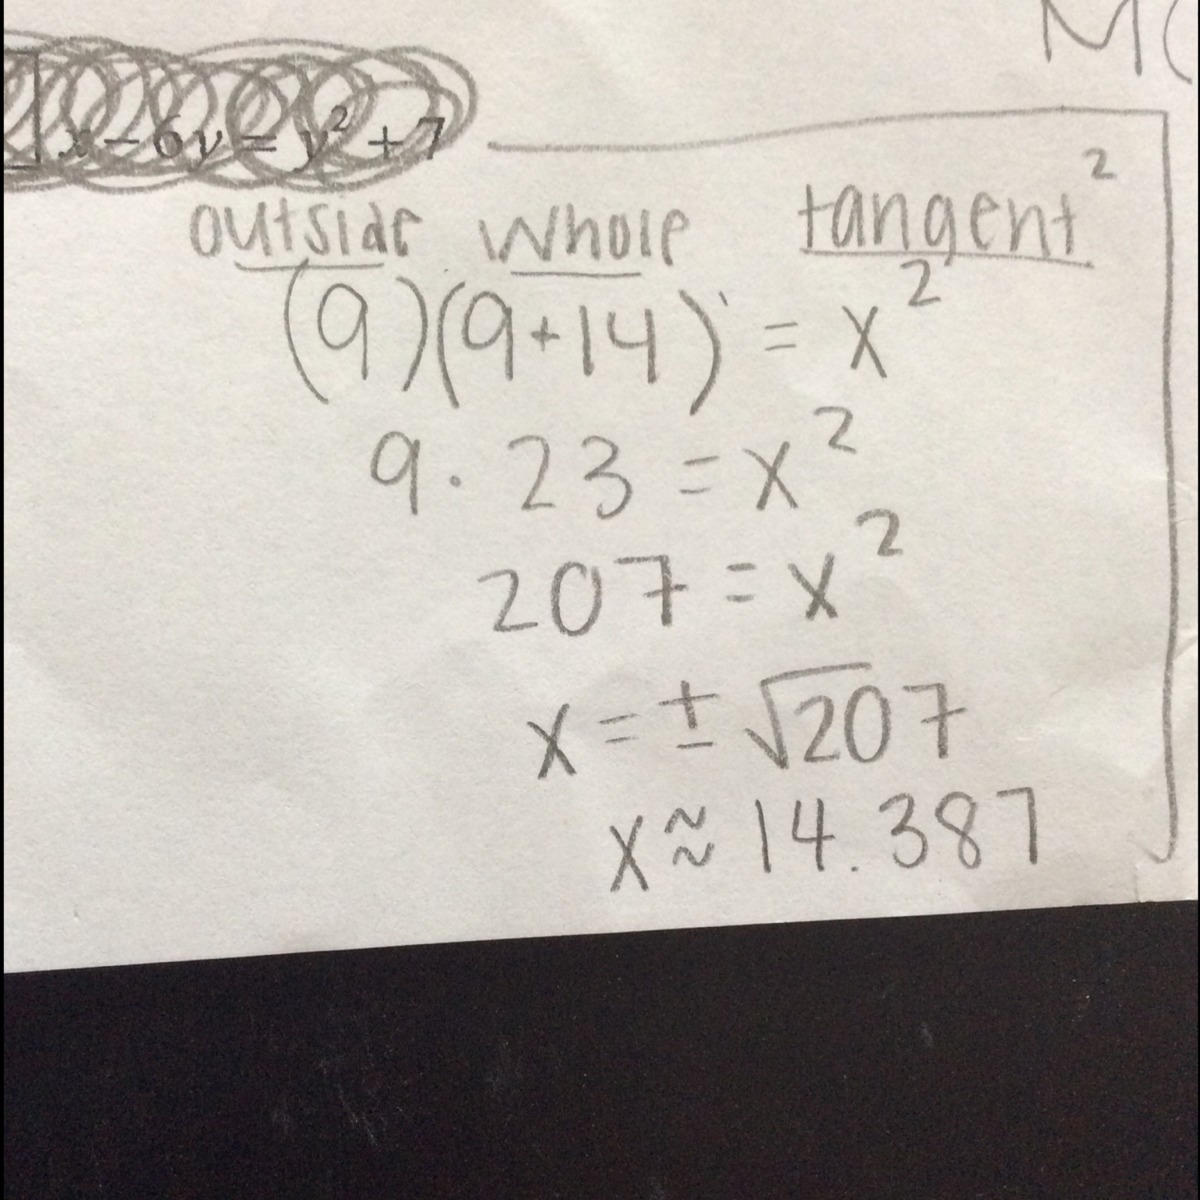 M
x - 6y = y² + 7
outside whole tangent²
(9)(9+14) = x²
9 · 23 = x²
207 = x²
x = ± √207
x ≈ 14.387